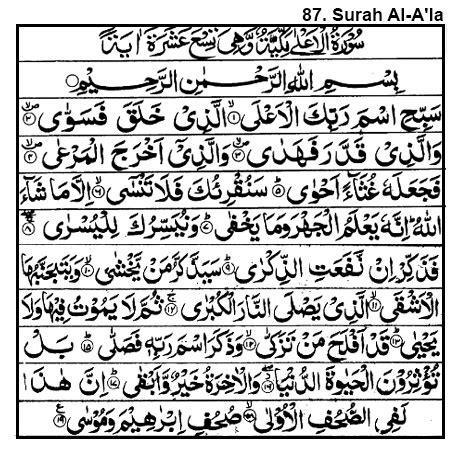 87. Surah Al-A'la
سُوْرَةُ الْاَعْلٰى مَكِّيَّةٌ وَّهِيَ تِسْعَ عَشْرَةَ اٰيَةً
بِسْمِ اللّٰهِ الرَّحْمٰنِ الرَّحِيْمِ
سَبِّحِ اسْمَ رَبِّكَ الْاَعْلَى ۙ﴿۱﴾ الَّذِيْ خَلَقَ فَسَوّٰى ۪ۙ﴿۲﴾
وَالَّذِيْ قَدَّرَ فَهَدٰى ۪ۙ﴿۳﴾ وَالَّذِيْۤ اَخْرَجَ الْمَرْعٰى ۪ۙ﴿۴﴾
فَجَعَلَهٗ غُثَآءً اَحْوٰى ؕ﴿۵﴾ سَنُقْرِئُكَ فَلَا تَنْسٰۤى ۙ﴿۶﴾ اِلَّا مَا شَآءَ
اللّٰهُ ؕ اِنَّهٗ يَعْلَمُ الْجَهْرَ وَمَا يَخْفٰى ؕ﴿۷﴾ وَنُيَسِّرُكَ لِلْيُسْرٰى ۚۖ﴿۸﴾
فَذَكِّرْ اِنْ نَّفَعَتِ الذِّكْرٰى ؕ﴿۹﴾ سَيَذَّكَّرُ مَنْ يَّخْشٰى ۙ﴿۱۰﴾ وَيَتَجَنَّبُهَا
الْاَشْقَى ۙ﴿۱۱﴾ الَّذِيْ يَصْلَى النَّارَ الْكُبْرٰى ۚ﴿۱۲﴾ ثُمَّ لَا يَمُوْتُ فِيْهَا وَلَا
يَحْيٰى ؕ﴿۱۳﴾ قَدْ اَفْلَحَ مَنْ تَزَكّٰى ۙ﴿۱۴﴾ وَذَكَرَ اسْمَ رَبِّهٖ فَصَلّٰى ؕ﴿۱۵﴾ بَلْ
تُؤْثِرُوْنَ الْحَيٰوةَ الدُّنْيَا ۖ﴿۱۶﴾ وَالْاٰخِرَةُ خَيْرٌ وَّاَبْقٰى ؕ﴿۱۷﴾ اِنَّ هٰذَا
لَفِي الصُّحُفِ الْاُوْلٰى ۙ﴿۱۸﴾ صُحُفِ اِبْرٰهِيْمَ وَمُوْسٰى ﴿۱۹﴾